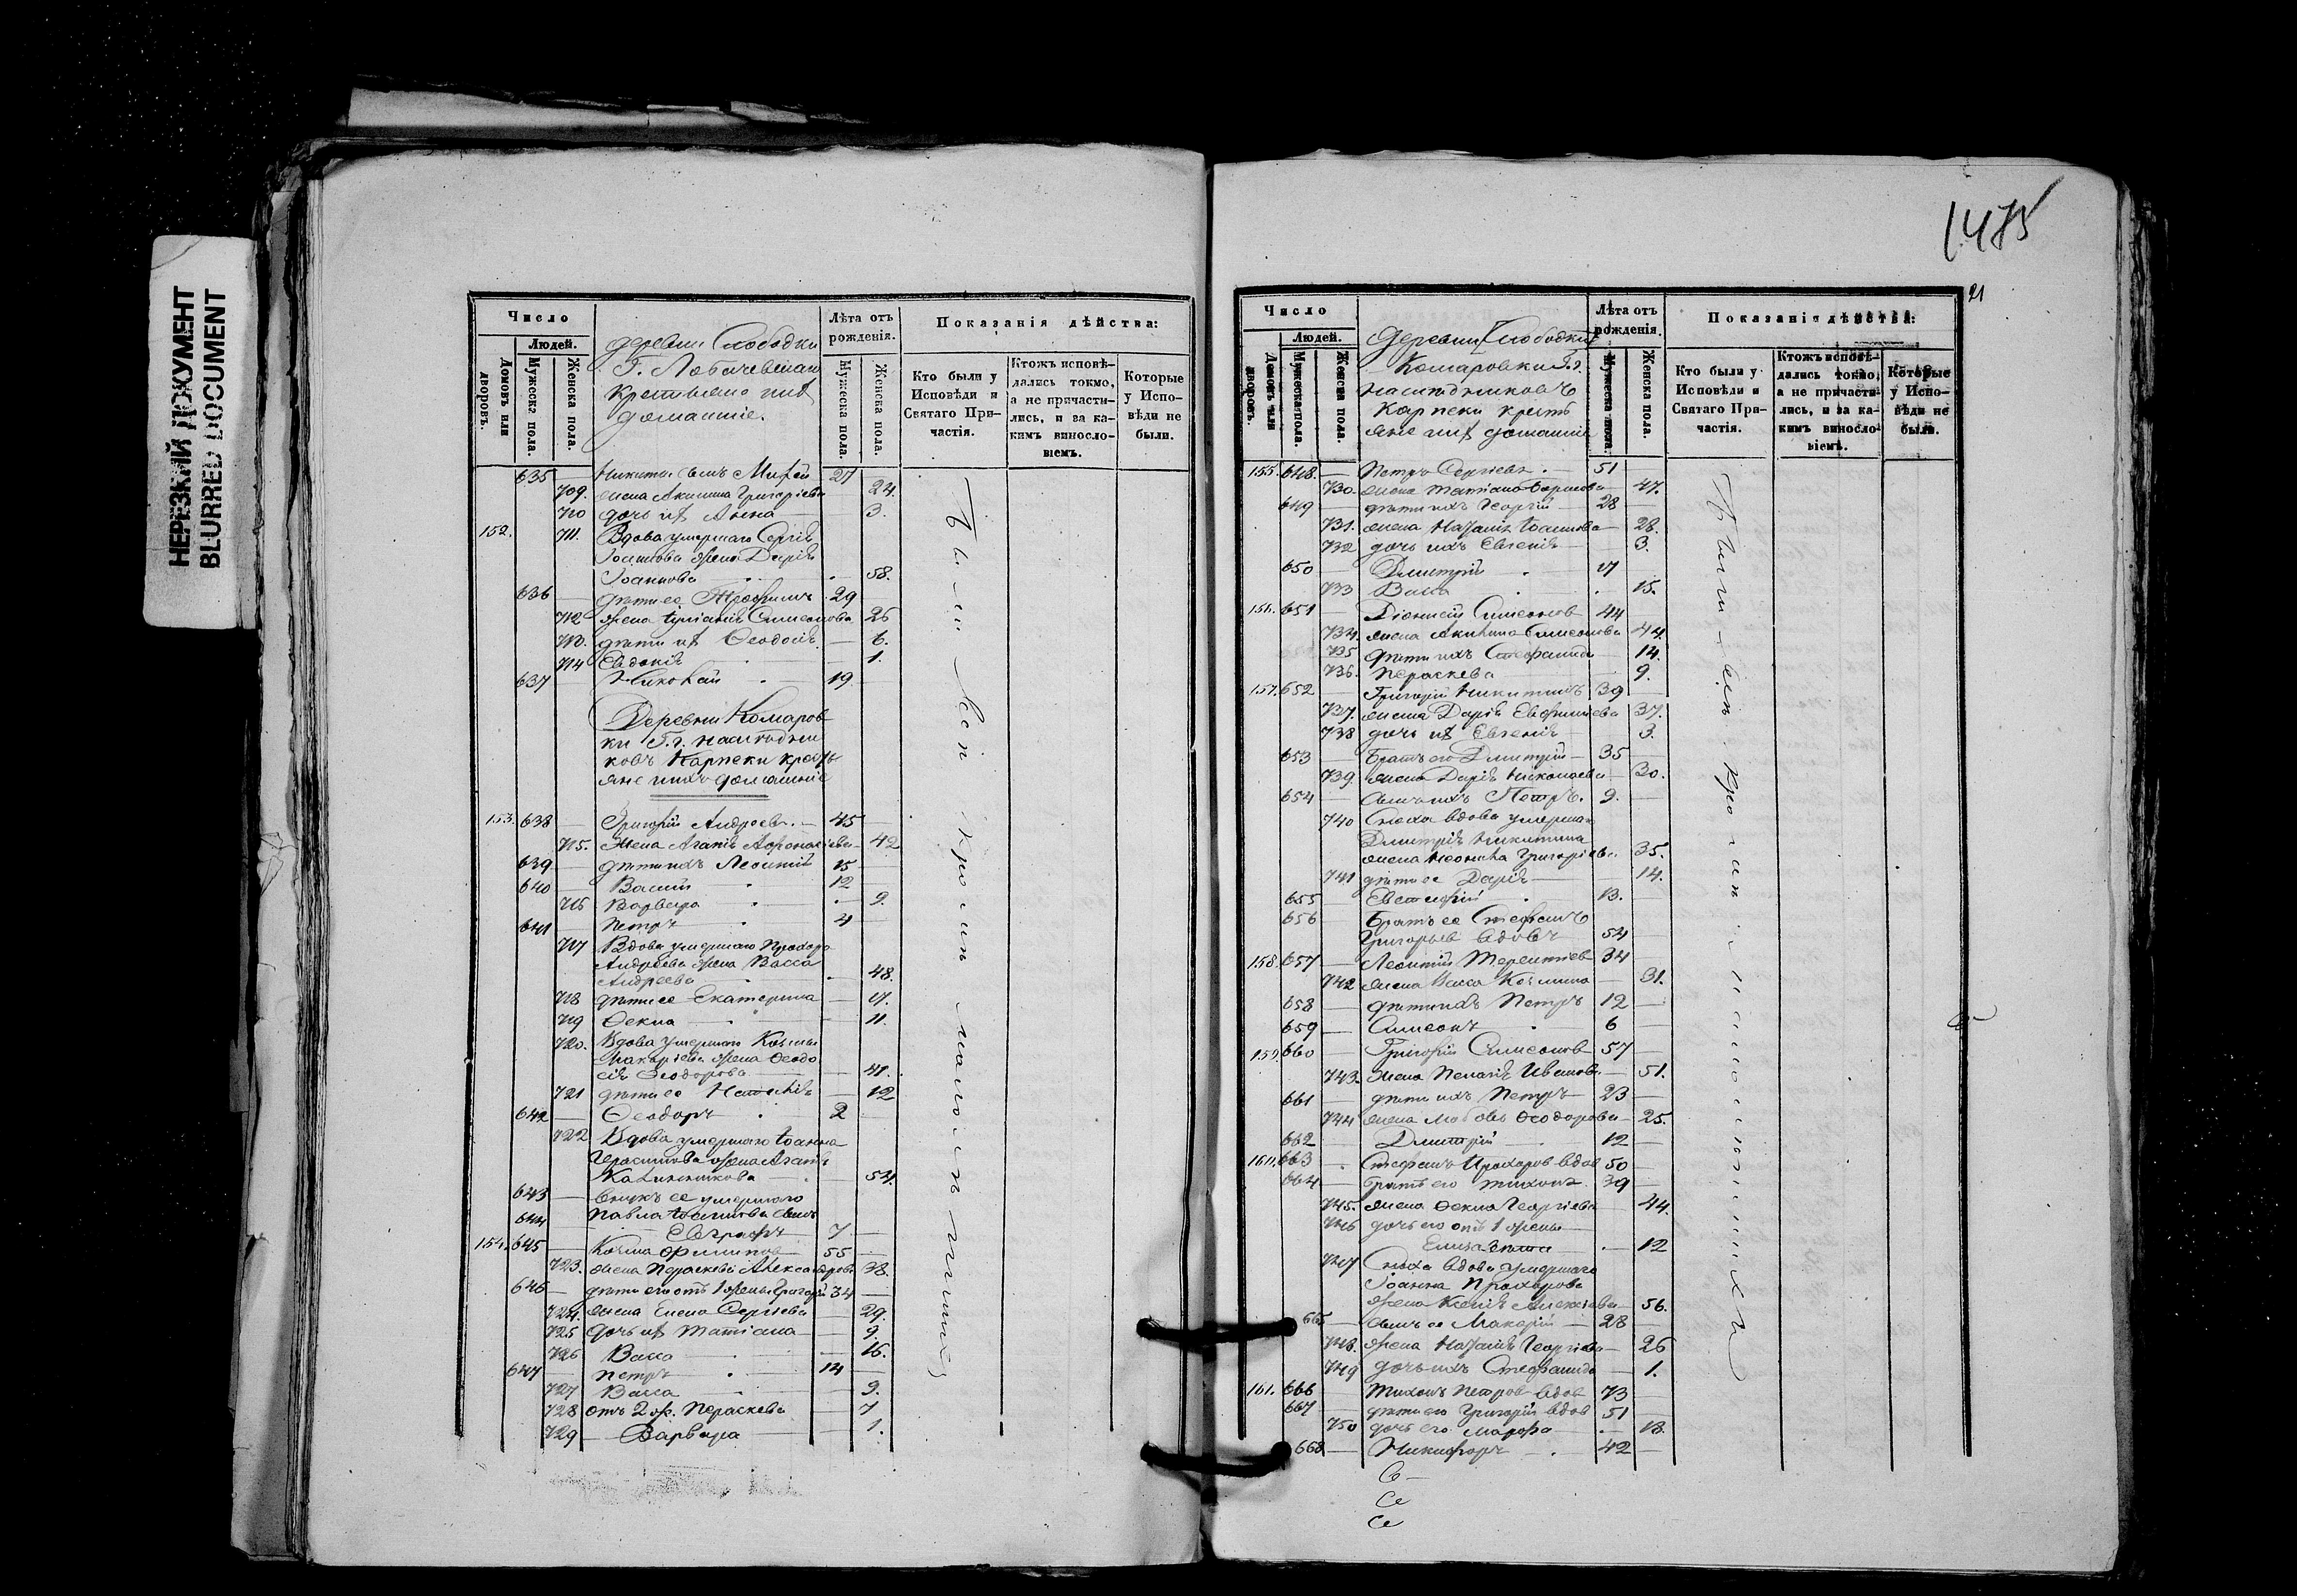 НЕРЕЗКИЙ ДОКУМЕНТ
BLURRED DOCUMENT
Число
Людей.
Домовъ или дворовъ.
Мужеска пола.
Женска пола.
деревни Слободки
Г. Лобачевскаго
крестьяне ихъ
домашніе.
Лѣта отъ рожденія.
Мужеска пола.
Женска пола.
Показанія дѣйства:
Кто были у Исповѣди и Святаго Причастія.
Ктожъ исповѣдались токмо, а не причастились, и за какимъ винословіемъ.
Которые у Исповѣди не были.
635 Никита 27
709. жена Акилина Григоріева 24.
710 дочь ихъ Анна 3.
152. 711. Вдова умершаго Сергія
Іоаннова жена Дарія
Іоаннова 58.
636 дѣти ее Трофимъ 29
712 жена Іуліанія Симеонова 26
713. дѣти ихъ Ѳеодосія 6.
714 Евдокія 1.
637 Николай 19
Деревни Комаров
ки Г.г. наслѣдни
ковъ Карпеки кресть
яне ихъ домашніе
153. 638 Григорій Андреевъ 45
715. Жена Агапія Афонасіева 42
639 дѣти ихъ Леонтій 15
640 Васій 12
716 Варвара 9.
641 Петръ 4
717 Вдова умершаго Прохора
Андреева жена Васса
Андреева 48.
718 дѣти ее Екатерина 17.
719 Ѳекла 11.
720. Вдова умершаго Козмы
Макаріева жена Ѳеодо
сія Ѳеодорова 41.
721 дѣти ее Наталія 12
642 Ѳеодоръ 2
722 Вдова умершаго Іоанна
Герасимова жена Агапія
Калинникова 54.
643 внукъ ее умершаго
644 Павла Іоаннова сынъ
Евграфъ 7
154. 645 Козма Филиповъ 55
723. жена Параскева Александрова 38.
646 дѣти его отъ 1 жены Григорій 34
724. жена Елена Сергіева 29.
725 дочь ихъ Татіана 9.
726 Васса 16.
647 Петръ 14
727 Васса 9.
728 отъ 2 ж. Параскева 7
729 Варвара 1.
Были всѣ кромѣ малолѣтнихъ
1475
21
Число
Людей.
Домовъ или дворовъ.
Мужеска пола.
Женска пола.
Деревни Слободки
Комаровки Г.г.
наслѣдниковъ
Карпеки кресть
яне ихъ домашніе
Лѣта отъ рожденія.
Мужеска пола.
Женска пола.
Показанія дѣйства:
Кто были у Исповѣди и Святаго Причастія.
Ктожъ исповѣдались токмо, а не причастились, и за какимъ винословіемъ.
Которые у Исповѣди не были.
155. 648. Петръ Сергіевъ 51
730. жена Татіана 47.
649 дѣти ихъ Георгій 28
731. жена Наталія Іоаннова 28.
732 дочь ихъ Евгенія 3.
650 Димитрій 17
733 Васса 15.
156. 651 Діонисій Симеоновъ 44
734. жена Акилина Симеонова 44.
735 дѣти ихъ Стефанида 14.
736. Параскева 9.
157. 652 Григорій Никитинъ 39
737. жена Дарія Евфиміева 37.
738 дочь ихъ Евгенія 3.
653 Братъ его Дмитрій 35
739. жена Дарія Николаева 30.
654 сынъ ихъ Петръ. 9.
740 Сноха вдова умершаго
Дмитрія Никитина
жена Неонила Григоріева 35.
741 дѣти ее Дарія 14.
655 Евстафій 13.
656 Братъ ее Стефанъ
Григорьев вдовъ 54
158. 657 Леонтій Терентіев 34
742 жена Васса Козмина 31.
658 дѣти ихъ Петръ 12
659 Симеонъ 6
159. 660 Григорій Симеонов 57
743. жена Пелагія Иванова 51.
661 дѣти ихъ Петръ 23
744 жена Любовь Ѳеодорова 25.
662 Димитрій 12
160. 663 Стефанъ Прохоров вдов 50
664 Братъ его Тихонъ 39
745. жена Ѳекла Георгіева 44.
746 дочь его отъ 1 жены
Елизавета 12
747 Сноха вдова умершаго
Іоанна Прохорова
жена Ксенія Алексіева 56.
665 сынъ ее Макарій 28
748. жена Наталія Георгіева 26
749 дочь ихъ Стефанида 1.
161. 666 Тихонъ Петров вдов 73
667 дѣти его Григорій вдов 51
750 дочь его Марфа 13.
668 Никифоръ 42
Были всѣ кромѣ
Св
Се
Се